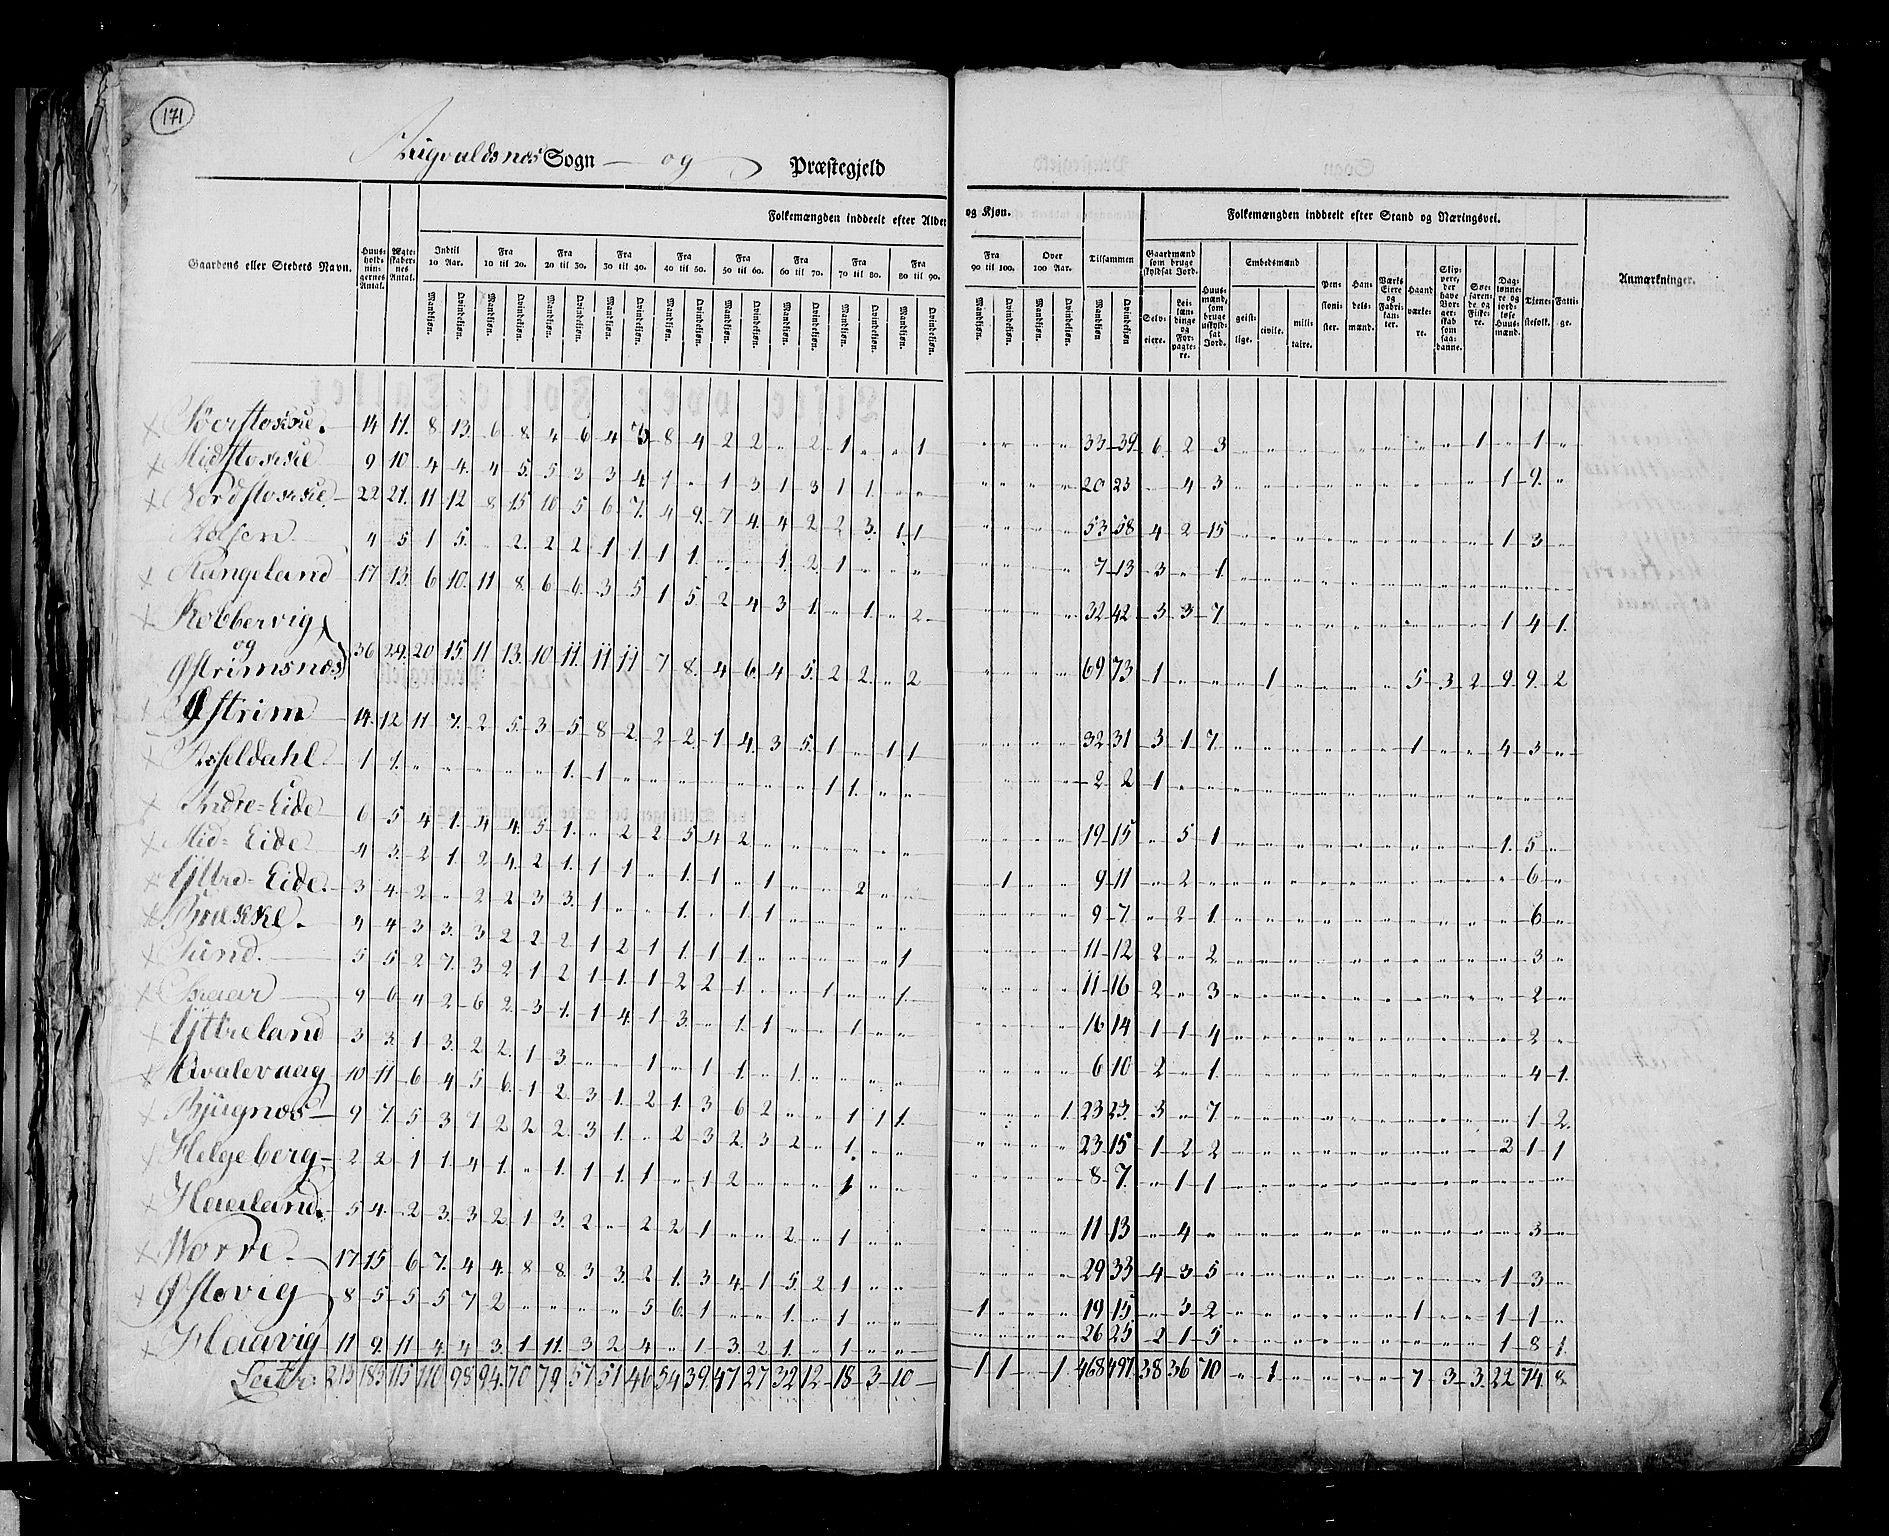 171
Augvaldsnæs Sogn — og Præstegjeld
Folkemængden inddeelt efter Alder og Kjøn.
Folkemængden inddeelt efter Stand og Næringsvei.
Gaardens eller Stedets Navn.
Huus-holdnin-gernes Antal.
Ægteskaber-nes Antal.
Indtil 10 Aar.
Fra 10 til 20.
Fra 20 til 30.
Fra 30 til 40.
Fra 40 til 50.
Fra 50 til 60.
Fra 60 til 70.
Fra 70 til 80.
Fra 80 til 90.
Fra 90 til 100.
Over 100 Aar.
Tilsammen
Mandkjøn. Qvindekjøn.
Gaardmænd som bruge skyldsat Jord.
Selv-eiere.
Lei-læn-dinge og For-pagte-re.
Huus-mænd, som bruge uskyld-sat Jord.
Embedsmænd
geist-lige.
civile.
mili-taire.
Pen-sioni-ster.
Han-dels-mænd.
Værks Eiere og Fabri-kan-ter.
Haand værke-re.
Skip-pere, der have Bor-ger-skab som saa-danne.
Søe-faren-de og Fiske-re.
Dag-lønne-re og jord-løse Huus-mænd.
Tjene-stefolk.
Fatti-ge.
Anmærkninger.
Søerstokke. 14 11. 8 13. 6 8. 4 6 4 3 8 4 2 2 „ 2 1 „ „ 1 „ „ „ „ 33 39 6 2 3 „ „ „ „ „ „ „ „ 1 „ 1 „
Midstokke 9 10 4 4. 4 5. 5 3 3 4 1 „ 1 3 1 3 1 1. „ „ „ „ „ „ 20 23 „ 4 3 „ „ „ „ „ „ „ „ „ 1 9. „
Nordstokke 22 21. 11 12 8 15 10 5 6 7. 4 9. 7 4. 4 2 2 3. 1 1 „ „ „ „ 53 58 4 2 15 „ „ „ „ „ „ „ „ „ 1 3 „
4 5 1 5. „ 2. 2 2 1 1. 1 1. „ „ 1. 2. 1 „ „ „ „ „ „ „ 7 13 3 „ 1. „ „ „ „ „ „ „ „ „ „ „ „
Kangeland 17 13 6 10. 11 8. 6 6. 3 5 1 5. 2 4 3 1. „ 1. „ 2 „ „ „ „ 32 42 3 3 7 „ „ „ „ „ „ „ „ „ 1 4 1.
Kobbervig
og
Østrimsnæs 36 29. 20 15. 11 13. 10 11. 11 11 7 8. 4 6. 4 5. 2 2. „ 2 „ „ „ „ 69 73 1 „ „ „ 1 „ „ „ „ 5 3 2 9 9. 2
Østrim 14. 12 11 7. 2 5. 3 5 8 2. 2 2. 1 4. 3 5. 1 „ 1 1 „ „ „ „ 32 31 3 1 7 „ „ „ „ „ „ 1 „ „ 4 3 „
1 1. „ „ „ „ „ 1. 1 „ „ „ „ „ „ „ 1 1. „ „ „ „ „ „ 2 2 1 „ „ „ „ „ „ „ „ „ „ „ „ „ „
Indre-Eide 6 5 4 1. 4 4. 5 1. „ 2 2 5 4 2 „ „ „ „ „ „ „ „ „ „ 19 15 „ 5 1 „ „ „ „ „ „ „ „ „ 1. 5 „
Mid-Eide 4 3. 2 1. 2 4. 2 1. 1 1 „ 1. 1 „ 1 „ „ 2 „ „ „ 1 „ „ 9 11 „ 2 „ „ „ „ „ „ „ „ „ „ „ 6 „
Yttre-Eide. 3 4. 2 „ 2 2 3 3. 1 „ „ 1. „ 1. 1 „ „ „ „ „ „ „ „ „ 9 7 „ 2 1. „ „ „ „ „ „ „ „ „ „ 6 „
Brække. 4 4 3 3. 3 2 2 2 1 2 1 1. 1 1. „ „ „ „ „ 1 „ „ „ „ 11 12 2 „ 2. „ „ „ „ „ „ „ „ „ „ 3 „
Sund. 5 5 2 7. 3 2 1 2 1 1. 1 2 2 1. „ „ 1 „ „ 1. „ „ „ „ 11 16 2 „ 3 „ „ „ „ „ „ „ „ „ „ 2 „
9 6 4 2 6 2. 3 1. 1 4. 1 3. „ 1. 1 „ „ 1 „ „ „ „ „ „ 16 14 1 1 4 „ „ „ „ „ „ „ „ „ „ 2 „
Yttreland 3 3 1 3. 2 2. 1 3 „ „ 1 „ 1 1. „ 1. „ „ „ „ „ „ „ „ 6 10 2 „ 1. „ „ „ „ „ „ „ „ „ „ 4 1.
Qvalevaag 10 11 6 4 5 6. 1 2. 3 1. 2 1. 3 6 2 „ „ 1 1 1. „ „ „ 1. 23 23. 3 „ 7 „ „ „ „ „ „ „ „ „ „ 1 2.
Bjugnæs 9 7. 5 3 7 2 2 2. 3 1. „ 2 3 2. 3 2 „ 1. „ „ „ „ „ „ 23 15 1 2 2 „ „ „ „ „ „ „ „ „ 2 1 1
Helgeberg 2 2 1 1. 4 1. „ 1. 1 1. 1 „ 1 2 „ „ „ 1 „ „ „ „ „ „ 8 7. „ 1 1 „ „ „ „ „ „ „ „ „ „ „ „
5 4. 2 3. 3 2. 1 3. 2 „ 2 2 1 „ „ 2. „ 1 „ „ „ „ „ „ 11 13 „ 4 „ „ „ „ „ „ „ „ „ „ „ 3 „
Vorre 17 15 6 7. 4 4. 8 8. 3 3. 2 1. 3 4. 1 5. 2 1 „ „ „ „ „ „ 29 33 4 3 5 „ „ „ „ „ „ „ „ „ 1 3 „
Østevig 8 5 5 5 7 2 „ „ „ „ 5 6. 1 „ „ 1. „ 1 „ „ 1 „ „ „ 19 15. „ 3 2 „ „ „ „ „ „ 1 „ „ 1 1 „
Haavig 11 9. 11 4. 4 3. 1 11. 3 2 4 „ 1 3. 2 1. „ 1 „ „ „ „ „ „ 26 25 2 1 5 „ „ „ „ „ „ „ „ „ 1 8 1.
213 183 115 110 98 94. 70 79 57 51 46 54 39. 47 27 32 12 18 3 10 1 1 „ 1 468 497 38 36 70 „ 1 „ „ „ „ 7 3 3. 22 74. 8